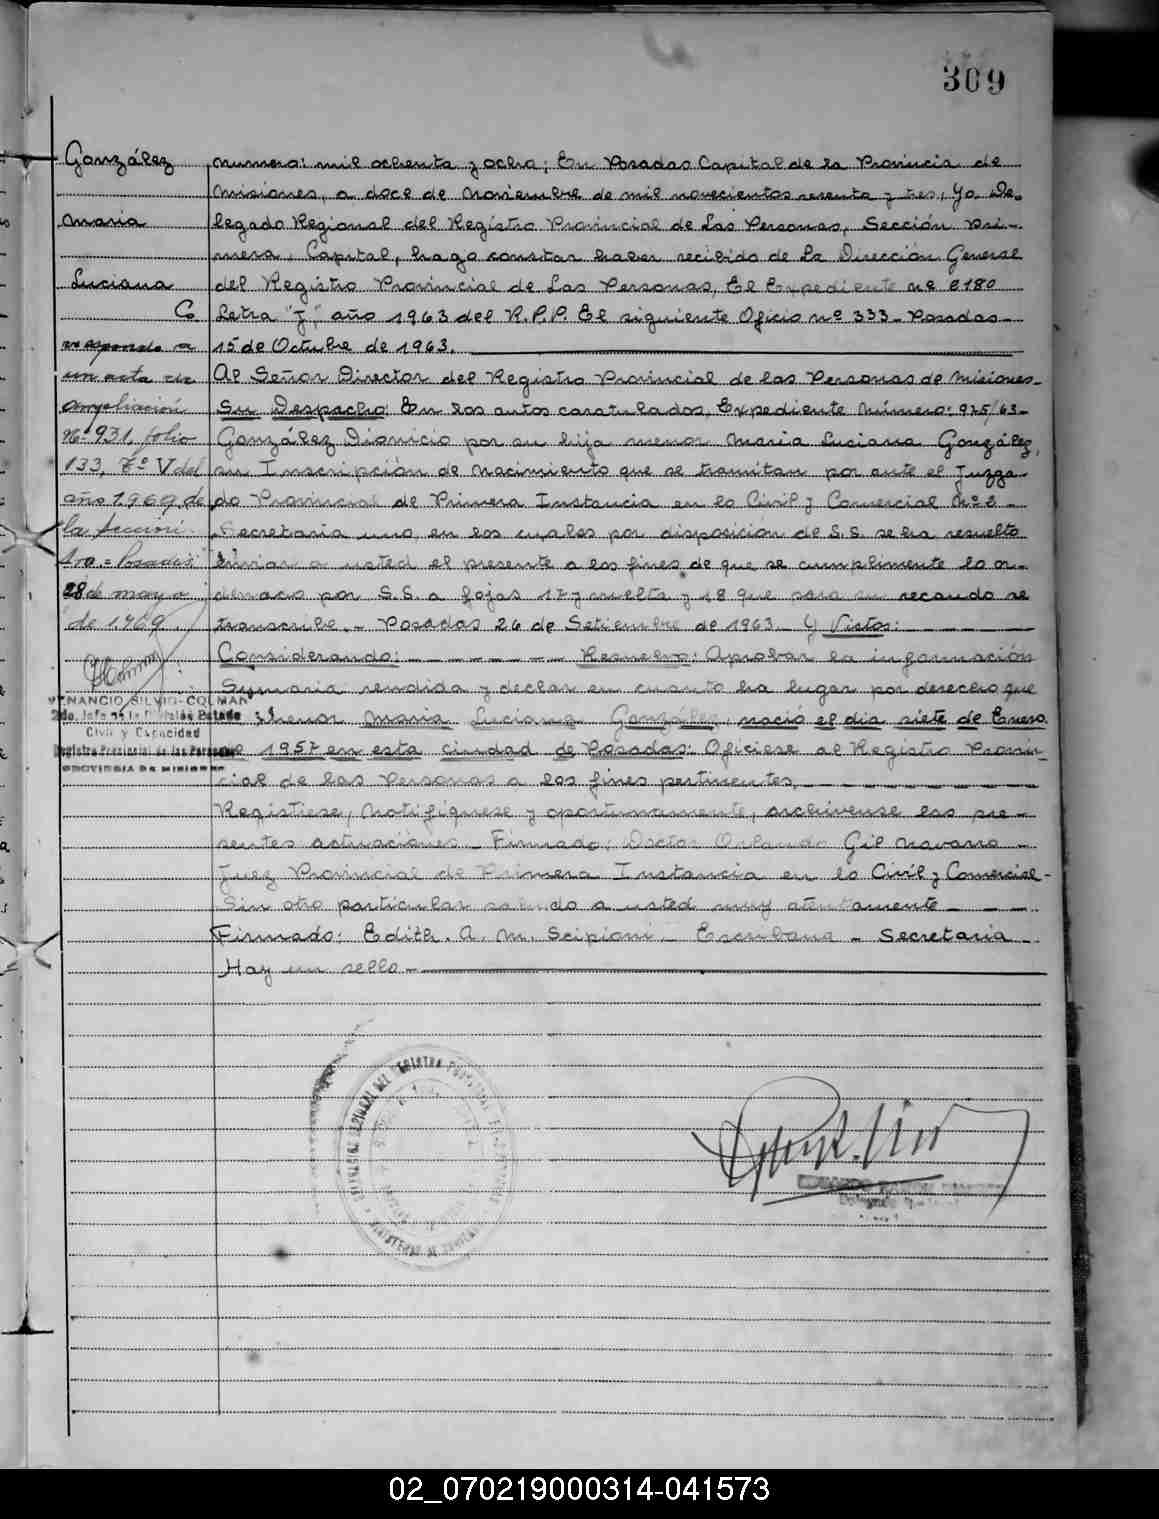 309
González
Maria
Luciana
Co
rresponde a
un acta de
ampliación
Nº 931, folio
133, Tº V del
año 1969 de
la Sección
1ra = Posadas
28 de mayo
de 1969.
VENANCIO SILVIO COLMAN
2do. Jefe de la División Estado
Civil y Capacidad
Registro Provincial de las Personas
PROVINCIA DE MISIONES
numero: mil ochenta y ocho; En Posadas Capital de la Provincia de
Misiones, a doce de Noviembre de mil novecientos sesenta y tres; Yo. De-
legado Regional del Registro Provincial de Las Personas, Sección Pri-
mera, Capital, hago constar haber recibido de La Dirección General
del Registro Provincial de Las Personas, El Expediente nº 6180
Letra "J", año 1963 del R.P.P. El siguiente Oficio nº 333 - Posadas -
15 de Octubre de 1963.
Al Señor Director del Registro Provincial de las Personas de Misiones -
Su Despacho: En los autos caratulados, Expediente Número: 925/63 -
González Dionicio por su hija menor Maria Luciana González,
su Inscripción de Nacimiento que se tramitan por ante el Juzga-
do Provincial de Primera Instancia en lo Civil y Comercial Nº 2 -
Secretaria uno, en los cuales por disposición de S.S. se ha resuelto
enviar a usted el presente a los fines de que se cumplimente lo or-
denado por S.S. a fojas 17 y vuelta y 18 que para su recaudo se
transcribe. - Posadas 26 de Setiembre de 1963. Y Vistos: - - - -
Considerando: - - - - - Resuelvo: Aprobar la información
Sumaria rendida y declar en cuanto ha lugar por derecho que
menor Maria Luciana González, nació el dia siete de Enero
de 1957 en esta ciudad de Posadas: Ofíciese al Registro Provin-
cial de las Personas a los fines pertinentes, - - - - - -
Registrese, Notifíquese y oportunamente, archívense las pre-
sentes actuaciones - Firmado: Doctor Orlando Gil Navarro -
Juez Provincial de Primera Instancia en lo Civil y Comercial -
Sin otro particular saludo a usted muy atentamente - - -
Firmado: Edith. A. M. Scipioni - Escribana - Secretaria -
Hay un sello -
02_070219000314-041573